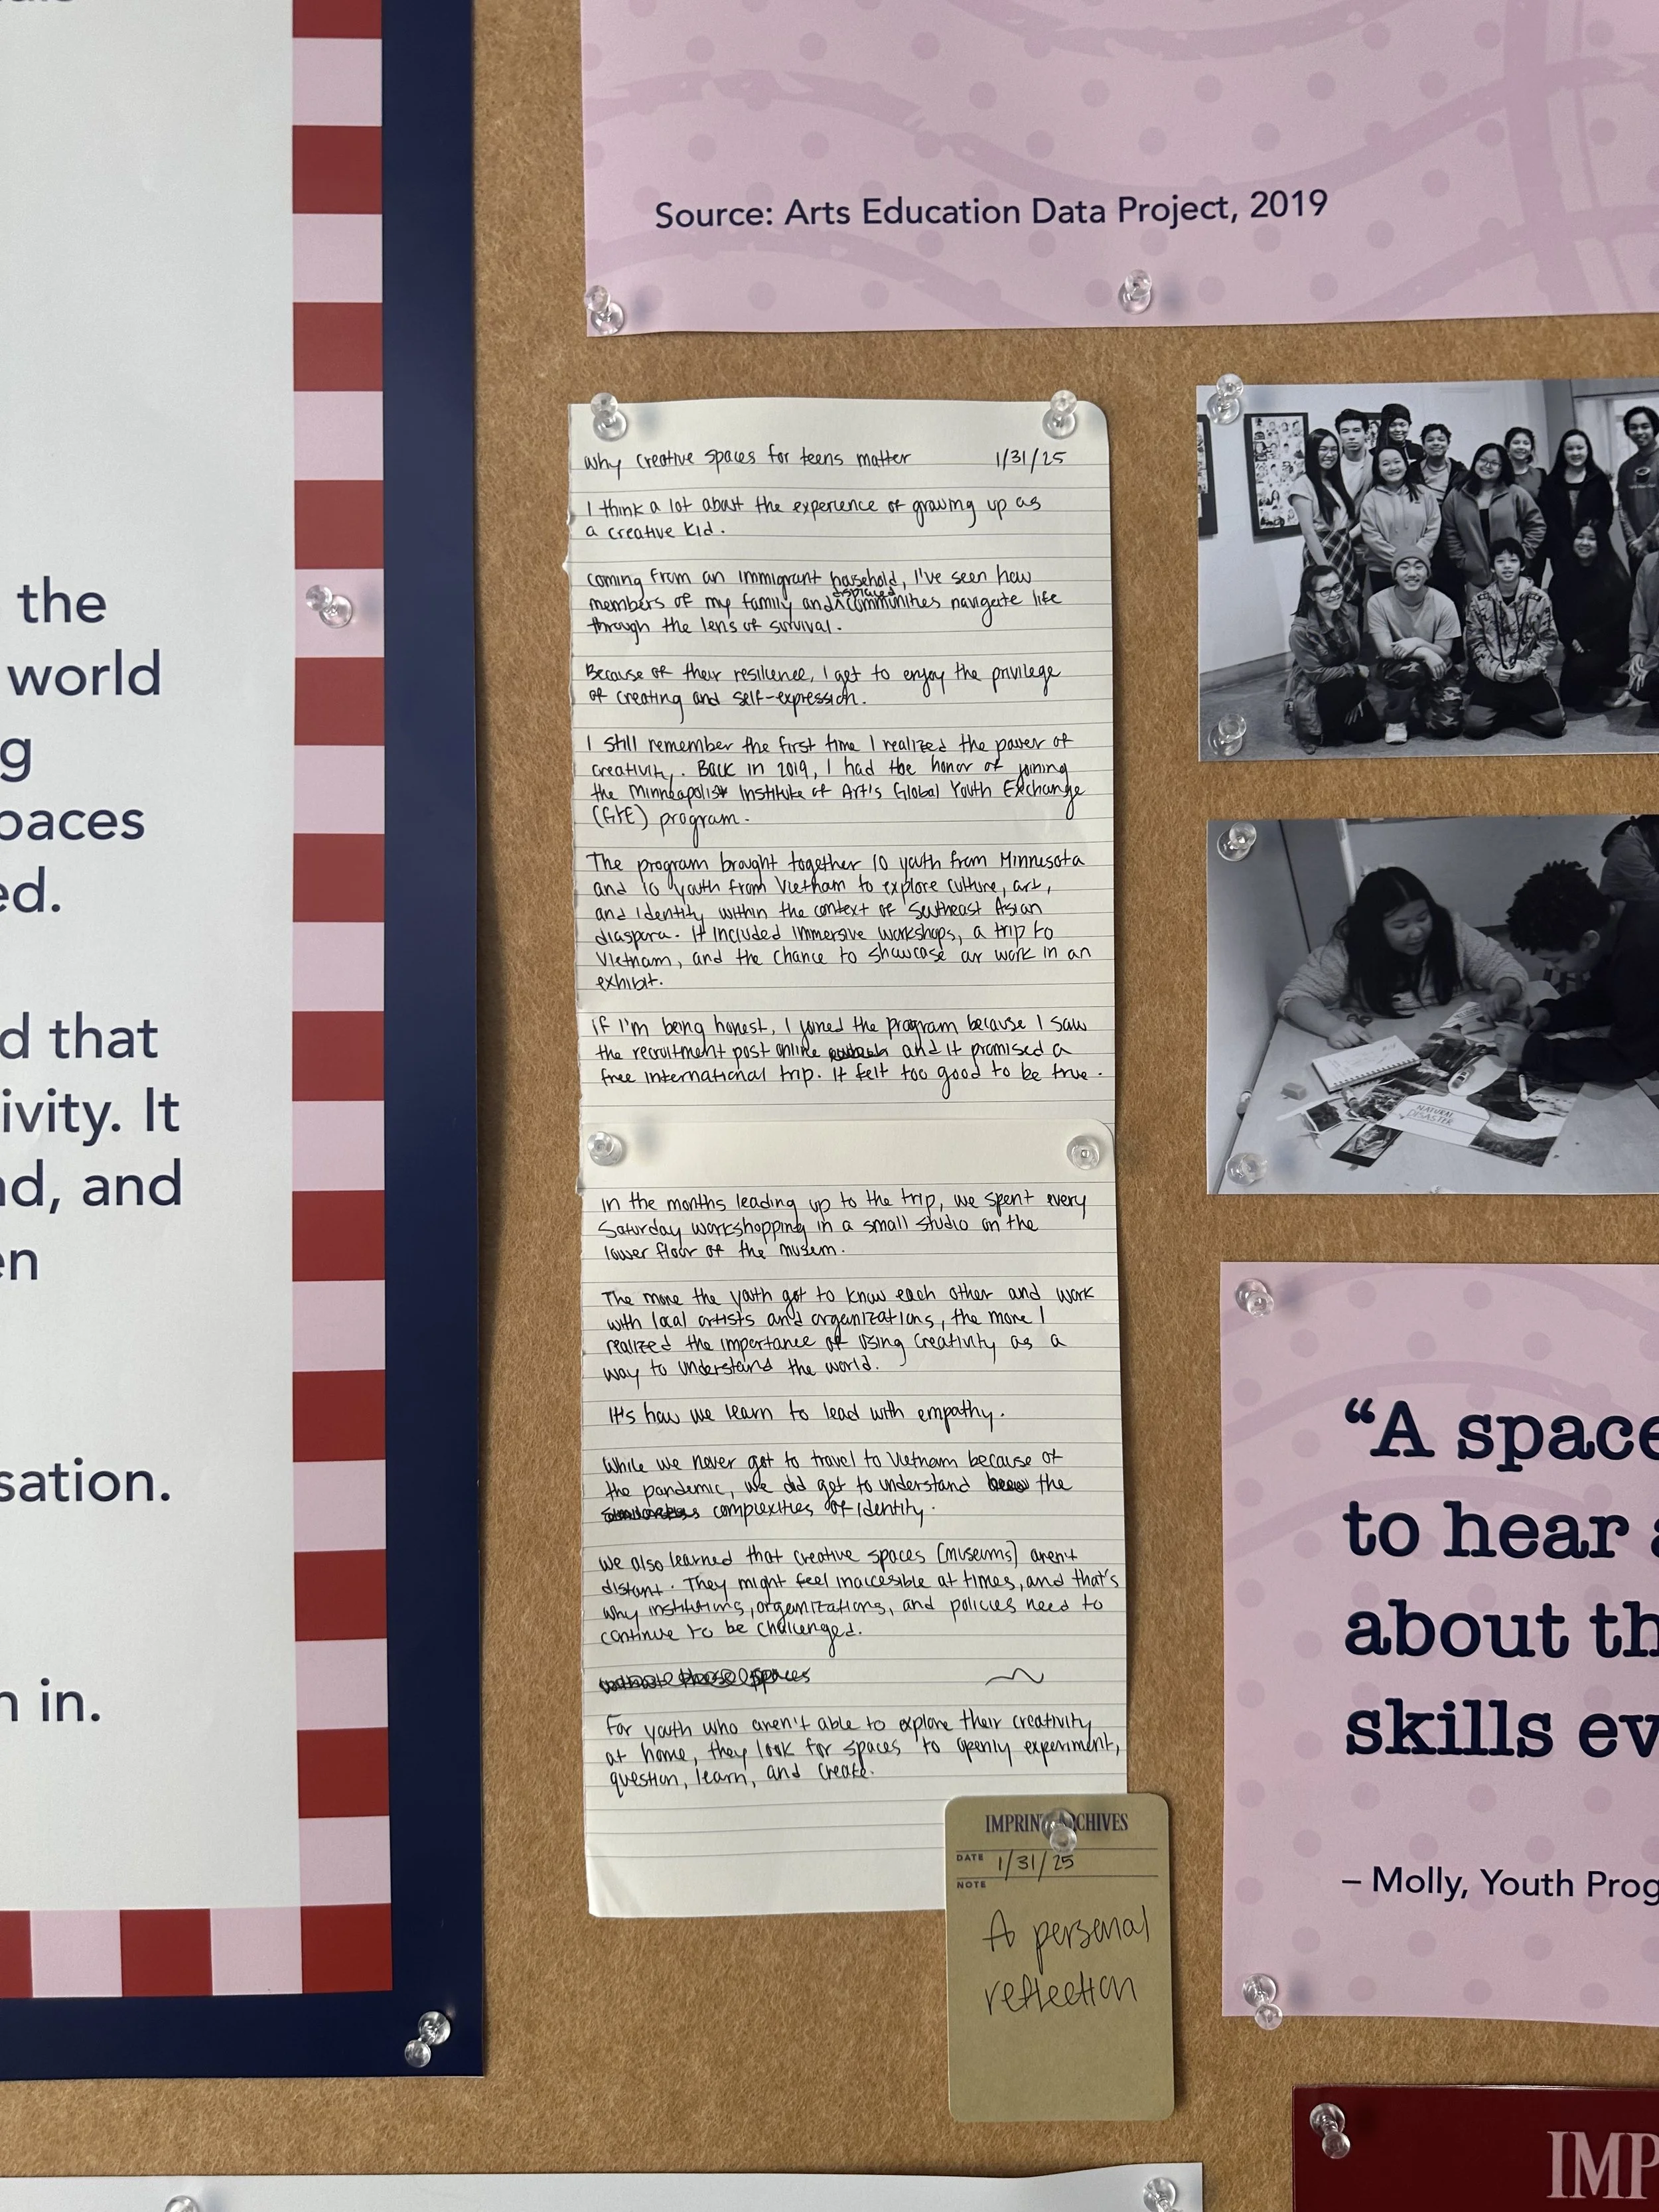 the
world
g
paces
ed.
d that
ivity. It
nd, and
en
sation.
n in.
Source: Arts Education Data Project, 2019
Why creative spaces for teens matter 1/31/25
I think a lot about the experience of growing up as
a creative kid.
Coming from an immigrant household, I've seen how
members of my family and ^displaced communities navigate life
through the lens of survival.
Because of their resilience, I get to enjoy the privilege
of creating and self-expression.
I still remember the first time I realized the power of
creativity. Back in 2019, I had the honor of joining
the Minneapolis Institute of Art's Global Youth Exchange
(GYE) program.
The program brought together 10 youth from Minnesota
and 10 youth from Vietnam to explore culture, art,
and identity within the context of Southeast Asian
diaspora. It included immersive workshops, a trip to
Vietnam, and the chance to showcase our work in an
exhibit.
If I'm being honest, I joined the program because I saw
the recruitment post online and it promised a
free international trip. It felt too good to be true.
In the months leading up to the trip, we spent every
Saturday workshopping in a small studio on the
lower floor of the musem.
The more the youth got to know each other and work
with local artists and organizations, the more I
realized the importance of using creativity as a
way to understand the world.
It's how we learn to lead with empathy.
While we never got to travel to Vietnam because of
the pandemic, we did get to understand the
complexities of identity.
We also learned that creative spaces [museums] aren't
distant. They might feel inaccesible at times, and that's
why institutions, organizations, and policies need to
continue to be challenged.
For youth who aren't able to explore their creativity
at home, they look for spaces to openly experiment,
question, learn, and create.
IMPRINT ARCHIVES
DATE 1/31/25
NOTE
A personal
reflection
NATURAL
DISASTER
"A space
to hear a
about th
skills ev
– Molly, Youth Prog
IMP